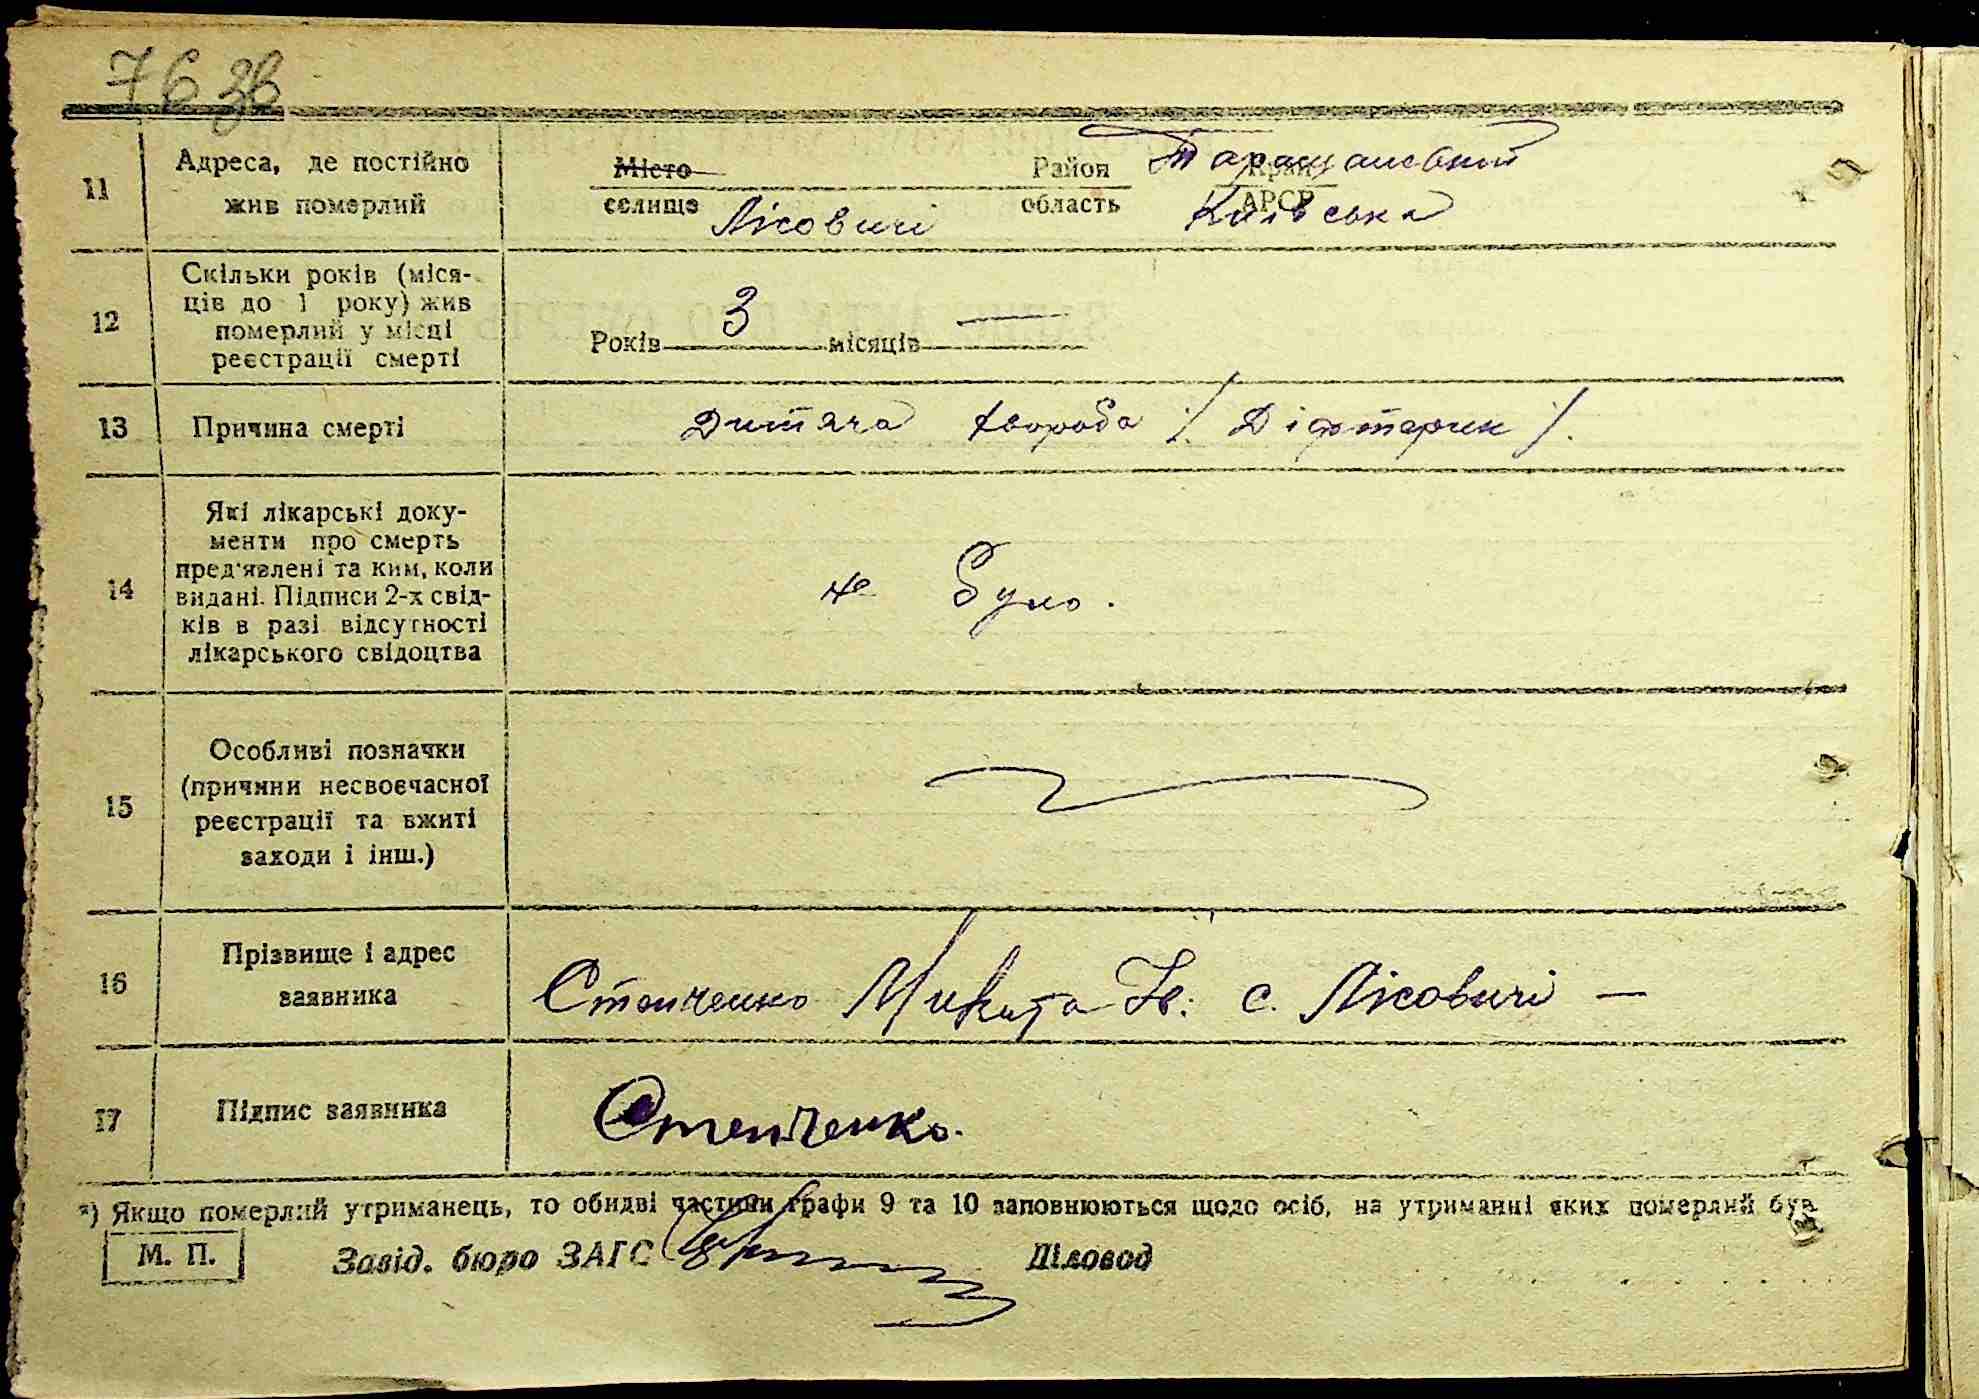 76 зв
11
Адреса, де постійно
жив померлий
Місто
селище
Лісовичі
Район
область
Таращанський
Край
АРСР
Київська
12
Скільки років (міся-
ців до 1 року) жив
померлий у місці
реєстрації смерті
Років 3 місяців —
13
Причина смерті
Дитяча хвороба /. Діфтерик /.
14
Які лікарські доку-
менти про смерть
пред'явлені та ким, коли
видані. Підписи 2-х свід-
ків в разі відсутності
лікарського свідоцтва
не було.
15
Особливі позначки
(причини несвоєчасної
реєстрації та вжиті
заходи і інш.)
16
Прізвище і адрес
заявника
Стенченко Микита Ів. с. Лісовичі —
17
Підпис заявника
Стенченко.
*) Якщо померлий утриманець, то обидві частини графи 9 та 10 заповнюються щодо осіб, на утриманні яких померлий був
М. П.
Завід. бюро ЗАГС
Діловод